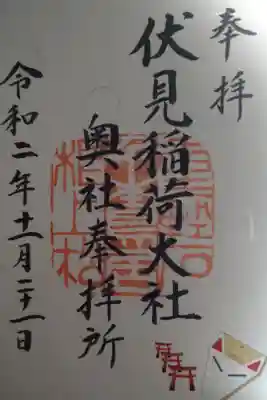 奉拝
伏見稲荷大社
奥社奉拝所
令和二年十一月二十一日